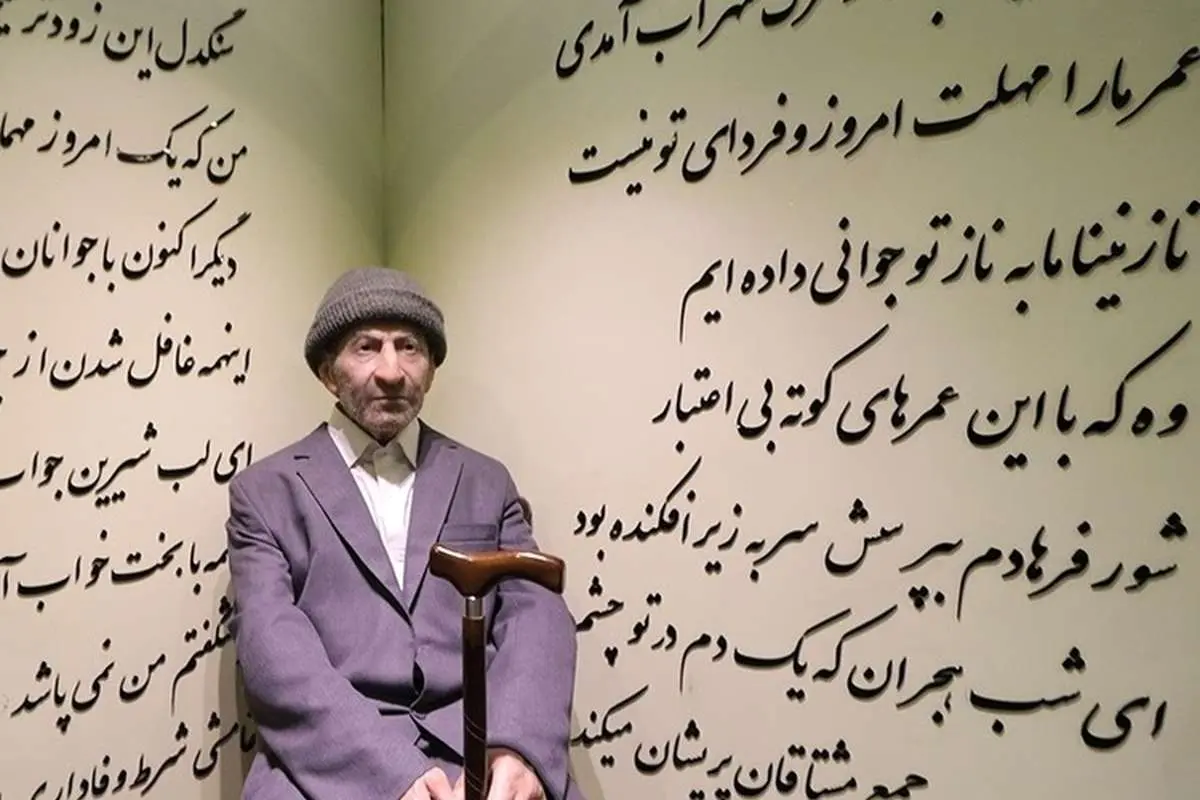 سهراب آمدی
عمر ما را مهلت امروز و فردای تو نیست
نازنینا ما به ناز تو جوانی داده ایم
وه که با این عمرهای کوته بی اعتبار
شور فرهادم بپرسش سر به زیر افکنده بود
ای شب هجران که یک دم در تو چشم
جمع مشتاقان پریشان میکند
سنگدل این زودتر
من که یک امروز
دیگر اکنون با جوانان
اینهمه غافل شدن از
ای لب شیرین جواب
با بخت خواب
شگفتم من نمی پاشد
شرط وفاداری